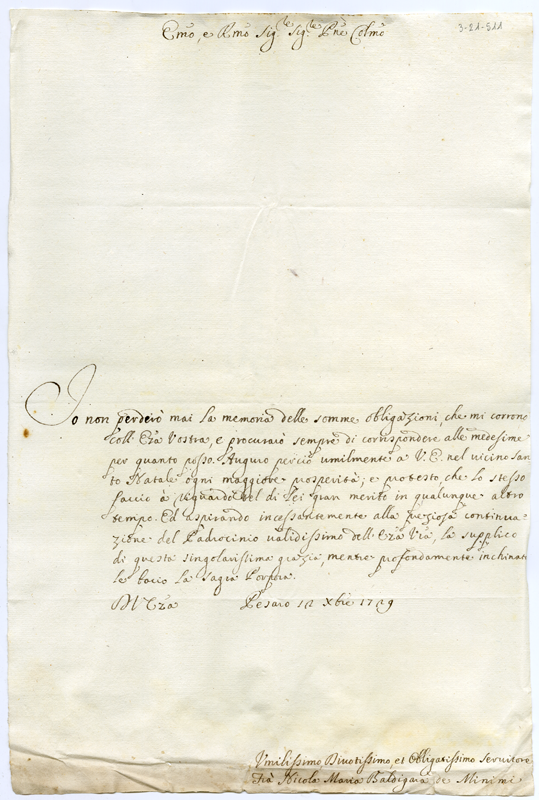 Emō, e Rmō Sig.re Sig.re Pne Colmō
3-21-511
Io non perderò mai la memoria delle somme obligazioni, che mi corrono
coll'Eza Vostra, e procurarò sempre di corrispondere alle medesime
per quanto posso. Auguro perciò umilmente a V. E. nel vicino San-
to Natale ogni maggiore prosperità; e protesto, che lo stesso
faccio à riguardo del di Lei gran merito in qualunque altro
tempo. Ed aspirando incessantemente alla preziosa continua-
zione del Padrocinio validissimo dell'Eza Vra, la supplico
di questa singolarissima grazia, mentre profondamente inchinato
le bacio la Sagra Porpora.
Dell'Eza Pesaro 12 Xbre 1729
Umilissimo Divotissimo, et Obligatissimo Servitore
Frà Nicola Maria Baldigara de Minimi